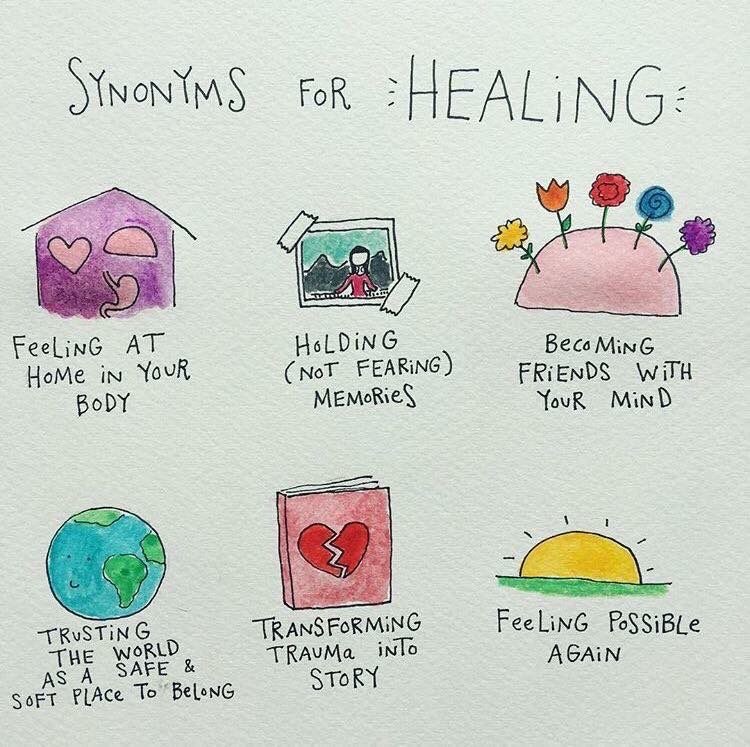 SYNONYMS FOR HEALING
FEELING AT
HOME IN YOUR
BODY
HOLDING
(NOT FEARING)
MEMORIES
BECOMING
FRIENDS WITH
YOUR MIND
TRUSTING
THE WORLD
AS A SAFE &
SOFT PLACE TO BELONG
TRANSFORMING
TRAUMA INTO
STORY
FEELING POSSIBLE
AGAIN